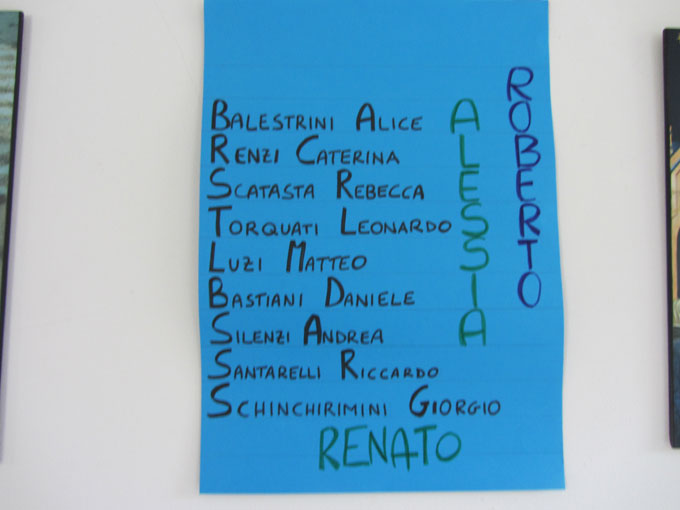 BALESTRINI ALICE
RENZI CATERINA
SCATASTA REBECCA
TORQUATI LEONARDO
LUZI MATTEO
BASTIANI DANIELE
SILENZI ANDREA
SANTARELLI RICCARDO
SCHINCHIRIMINI GIORGIO
RENATO
ALESSIA
ROBERTO